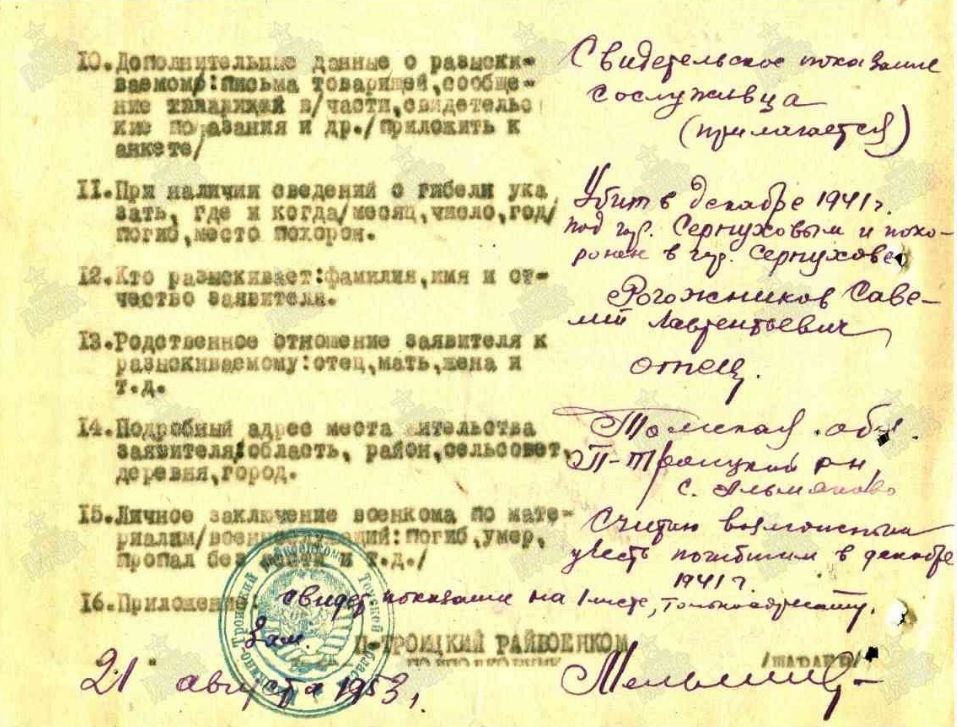 10.Дополнительные данные о разыски-
ваемом:письма товарищей,сообще-
ние в/части,свидетельс
кие показания и др./приложить к
анкете/
Свидетельское показание
сослуживца
(прилагается)
11.При наличии сведений о гибели ука
зать, где и когда/месяц,число,год/
погиб,место похорон.
Убит в декабре 1941 г.
под гор. Серпуховым и похо-
ронен в гор. Серпухове
12.Кто разыскивает:фамилия,имя и от-
чество заявителя.
Рогожников Саве-
лий Лаврентьевич
13.Родственное отношение заявителя к
разыскиваемому:отец,мать,жена и
т.д.
отец.
14.Подробный адрес места жительства
заявителя:область, район,сельсовет,
деревня,город.
Томская обл.
П-Троицкий р-н,
с. Альмяково
15.Личное заключение военкома по мате-
риалам/военнослужащий:погиб,умер,
пропал без вести и т.д./
Считаю возможным
учесть погибшим в декабре
1941 г.
16.Приложение: свидет. показание на 1 листе,
Зам. П-ТРОИЦКИЙ РАЙВОЕНКОМ
/ШАРАЕВ/
21 августа 1953 г.